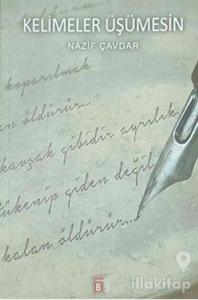 KELİMELER ÜŞÜMESİN
NAZİF ÇAVDAR
koparılmak
öldürür...
kavşak gibidir ayrılık
tükenip giden değil
kalan öldürür...
B
illakitap